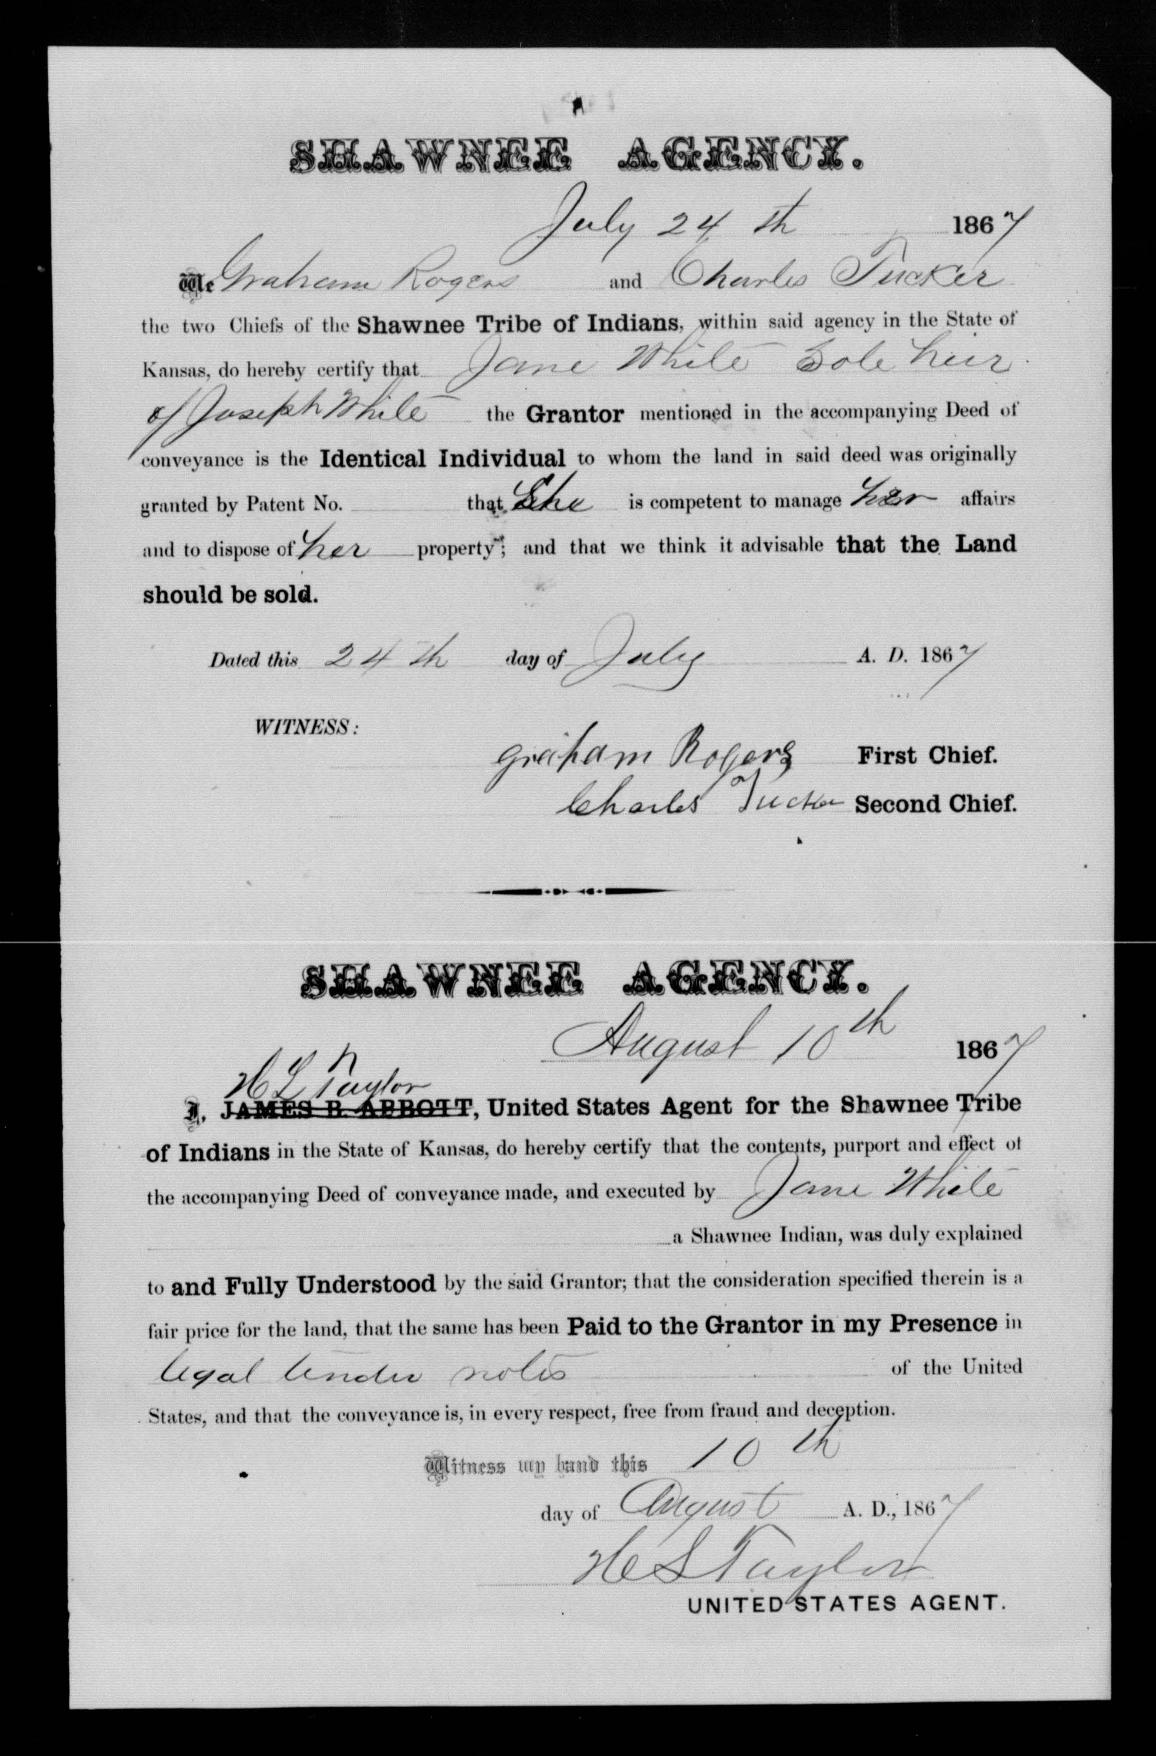 SHAWNEE AGENCY.
July 24th 1867
We Graham Rogers and Charles Tucker
the two Chiefs of the Shawnee Tribe of Indians, within said agency in the State of
Kansas, do hereby certify that Jane White Sole heir
of Joseph White the Grantor mentioned in the accompanying Deed of
conveyance is the Identical Individual to whom the land in said deed was originally
granted by Patent No. that She is competent to manage her affairs
and to dispose of her property; and that we think it advisable that the Land
should be sold.
Dated this 24th day of July A. D. 1867
WITNESS:
Graham Rogers First Chief.
Charles Tucker Second Chief.
SHAWNEE AGENCY.
August 10th 1867
H L Taylor
I, JAMES B. ABBOTT, United States Agent for the Shawnee Tribe
of Indians in the State of Kansas, do hereby certify that the contents, purport and effect of
the accompanying Deed of conveyance made, and executed by Jane White
a Shawnee Indian, was duly explained
to and Fully Understood by the said Grantor; that the consideration specified therein is a
fair price for the land, that the same has been Paid to the Grantor in my Presence in
legal tender notes of the United
States, and that the conveyance is, in every respect, free from fraud and deception.
Witness my hand this 10th
day of August A. D., 1867
H L Taylor
UNITED STATES AGENT.